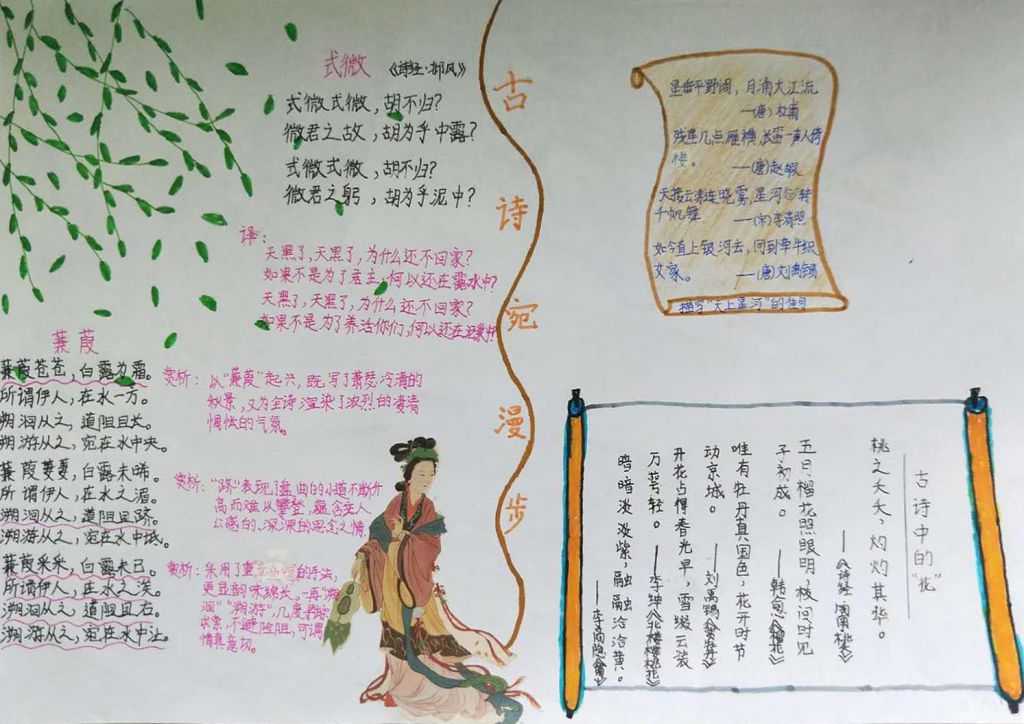 古诗宛漫步
式微 《诗经·邶风》
式微式微，胡不归？
微君之故，胡为乎中露？
式微式微，胡不归？
微君之躬，胡为乎泥中？
译：
天黑了，天黑了，为什么还不回家？
如果不是为了君主，何以还在露水中？
天黑了，天黑了，为什么还不回家？
如果不是为了养活你们，何以还在泥浆中？
蒹葭
蒹葭苍苍，白露为霜。
所谓伊人，在水一方。
溯洄从之，道阻且长。
溯游从之，宛在水中央。
蒹葭萋萋，白露未晞。
所谓伊人，在水之湄。
溯洄从之，道阻且跻。
溯游从之，宛在水中坻。
蒹葭采采，白露未已。
所谓伊人，在水之涘。
溯洄从之，道阻且右。
溯游从之，宛在水中沚。
赏析：以“蒹葭”起兴，既写了萧瑟冷清的
秋景，又为全诗渲染了浓烈的凄清
惆怅的气氛。
赏析：“跻”表现了盘曲的小道不断升
高而难以攀登，蕴含主人
公感伤、深深的思念之情
赏析：采用了重的手法，
更显韵味绵长，一再“溯
洄”“溯游”，几度
求索，不避险阻，可谓
情真意切。
星垂平野阔，月涌大江流
—（唐）杜甫
残星几点雁横，长笛一声人倚
楼。 —（唐）赵嘏
天接云涛连晓雾，星河欲转
千帆舞 —（宋）李清照
如今直上银河去，同到牵牛织
女家。 —（唐）刘禹锡
描写“天上星河”的佳句
古诗中的“花”
桃之夭夭，灼灼其华。
——《诗经·周南·桃夭》
五月榴花照眼明，枝间时见
子初成。 ——韩愈《榴花》
唯有牡丹真国色，花开时节
动京城。 ——刘禹锡《赏牡丹》
开花占得春光早，雪缀云装
万萼轻。 ——李绅《北楼樱桃花》
暗暗淡淡紫，融融冶冶黄。
——李商隐《菊》